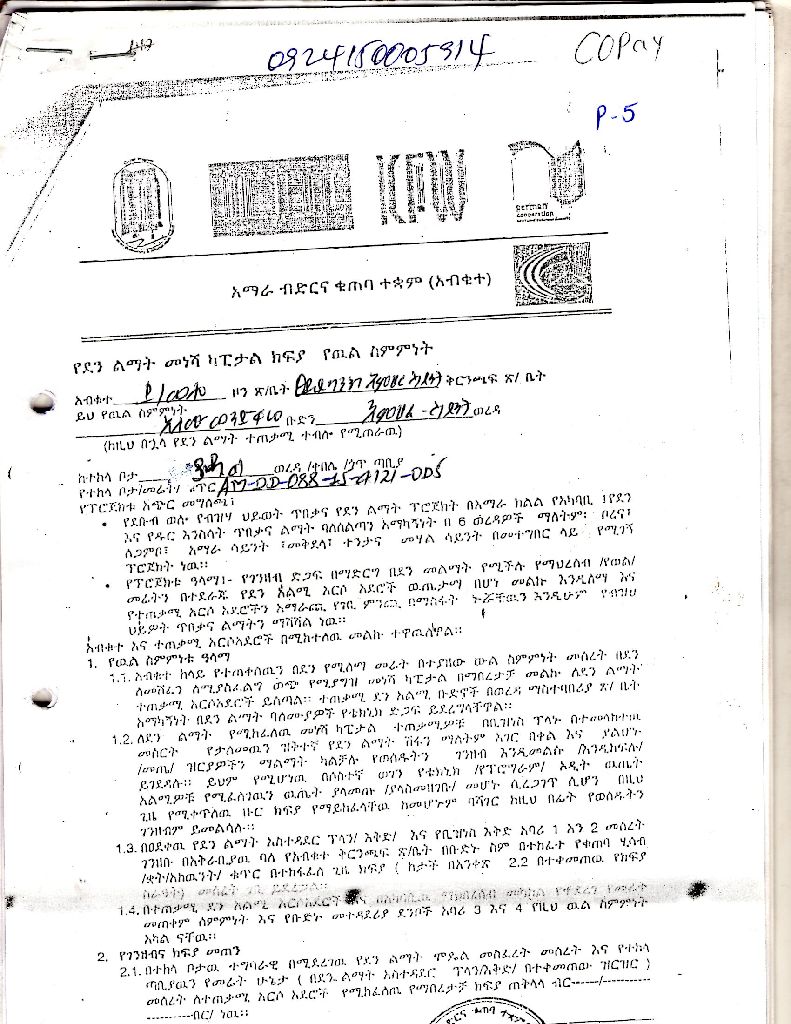 0924150005914
COPay
P-5
KFW
german
cooperation
አማራ ብድርና ቁጠባ ተቋም (አብቁተ)
የደን ልማት መነሻ ካፒታል ክፍያ የዉል ስምምነት
አብቁተ ዞን ጽ/ቤት ቅርንጫፍ ጽ/ ቤት
ይህ የዉል ስምምነት
ቡድን ወረዳ
(ከዚህ በኋላ የደን ልማት ተጠቃሚ ተብሎ የሚጠራዉ)
ከተከላ ቦታ ወረዳ /ተበሴ /ጎጥ ጣቢያ
የተከላ ቦታ/መሬት/ ቁጥር AM-DD-088-15-4121-005
የፕሮጀክቱ አጭር መግለጫ፤
• የደቡብ ወሎ የብዝሃ ህይወት ጥበቃና የደን ልማት ፕሮጀክት በአማራ ክልል የአካባቢ ፤የደን
እና የዱር እንስሳት ጥበቃና ልማት ባለስልጣን አማካኝነት በ 6 ወረዳዎች ማለትም፡ ቦረና፣
ለጋምቦ፣ አማራ ሳይንት ፣መቅደላ፣ ተንታና መሃል ሳይንት በመተግበር ላይ የሚገኝ
ፕሮጀክት ነዉ።
• የፕሮጀክቱ ዓላማ፤- የገንዘብ ድጋፍ በማድርግ በደን መልማት የሚችሉ የማህረሰብ /የወል/
መሬትን በተደራጁ የደን አልሚ አርሶ አደሮች ዉጤታማ በሆነ መልኩ እንዲለማ እና
የተጠቃሚ አርሶ አደሮችን አማራጪ የገቢ ምንጪ በማስፋት ኑሯቸዉን እንዲሁም የብዝሀ
ህይዎት ጥበቃና ልማትን ማሻሻል ነዉ።
አብቁተ እና ተጠቃሚ አርሶአደሮች በሚከተለዉ መልኩ ተዋዉለዋል።
1. የዉል ስምምነቱ ዓላማ
1.1. አብቁተ ከላይ የተጠቀሰዉን በደን የሚለማ መሬት በተያዘው ውል ስምምነት መሰረት በደን
ለመሸፈን ለሚያስፈልግ ወጭ የሚያግዝ መነሻ ካፒታል በማበረታቻ መልኩ ለደን ልማት
ተጠቃሚ አርሶአደሮች ይሰጣል። ተጠቃሚ ደን አልሚ ቡድኖች በወረዳ ማስተባበሪያ ጽ/ ቤት
አማካኝነት በደን ልማት ባለሙያዎች የቴክኒክ ድጋፍ ይደረግላቸዋል።
1.2. ለደን ልማት የሚከፈለዉ መነሻ ካፒታል ተጠቃሚዎቹ በቢዝነስ ፕላኑ በተመለከተዉ
መስርት የታለመዉን ዝቅተኛ የደን ልማት ሽፋን ማለትም አገር በቀል እና ያልሆኑ
/መጤ/ ዝርያዎችን ማልማት ካልቻሉ የወሰዱትን ገንዘብ እንዲመልሱ /እንዲከፍሉ/
ይገደዳሉ። ይህም የሚሆነዉ በሶስተኛ ወገን የቴክኒክ /የፕሮግራም/ ኦዲት ዉጤት
አልሚዎቹ የሚፈለገዉን ዉጤት ያላመጡ /ያላስመዘገቡ/ መሆኑ ሲረጋገጥ ሲሆን በዚህ
ጊዜ የሚቀጥለዉ ዙር ክፍያ የማይከፈላቸዉ ከመሆኑም ባሻገር ከዚህ በፊት የወሰዱትን
ገንዘብም ይመልሳሉ።
1.3. በፀደቀዉ የደን ልማት አስተዳደር ፕላን/ እቅድ/ እና የቢዝነስ እቅድ አባሪ 1 እን 2 መሰረት
ገንዘቡ በአቅራቢያዉ ባለ የአብቁተ ቅርንጫፍ ጽ/ቤት በቡድኑ ስም በተከፈተ የቁጠባ ሂሳብ
/ቋት/አከዉንት/ ቁጥር በተከፋፈለ ጊዜ ክፍያ ( ከታች በአንቀጽ 2.2 በተቀመጠዉ የክፍያ
ስራዓት) መሰረት ገቢ ይደረጋል።
1.4. በተጠቃሚ ደን አልሚ አርሶአደሮች እና
መጠቀም ስምምነት እና የቡድኑ መተዳደሪያ ደንቦች አባሪ 3 እና 4 የዚህ ዉል ስምምነት
አካል ናቸዉ።
2. የገንዘብና ክፍያ መጠን
2.1. በተከላ ቦታዉ ተግባራዊ በሚደረገዉ የደን ልማት ሞዴል መስፈረት መሰረት እና የተከላ
ጣቢያዉን የመሬት ሁኔታ ( በደን ልማት አስተዳደር ፕላን/እቅድ/ በተቀመጠው ዝርዝር )
መሰረት ለተጠቃሚ አርሶ አደሮች የሚከፈለዉ የማበረታቻ ክፍያ ጠቅላላ ብር------/----------
----------ብር/ ነዉ።